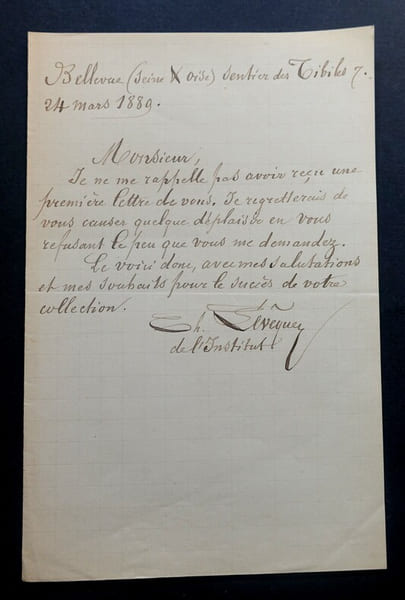 Bellevue (Seine & Oise) sentier des Tibiles 7.
24 mars 1889.
Monsieur,
Je ne me rappelle pas avoir reçu une
première lettre de vous. Je regretterais de
vous causer quelque déplaisir en vous
refusant le peu que vous me demandez.
Le voici donc, avec mes salutations
et mes souhaits pour le succès de votre
collection.
Ch. Lévêque
de l'Institut